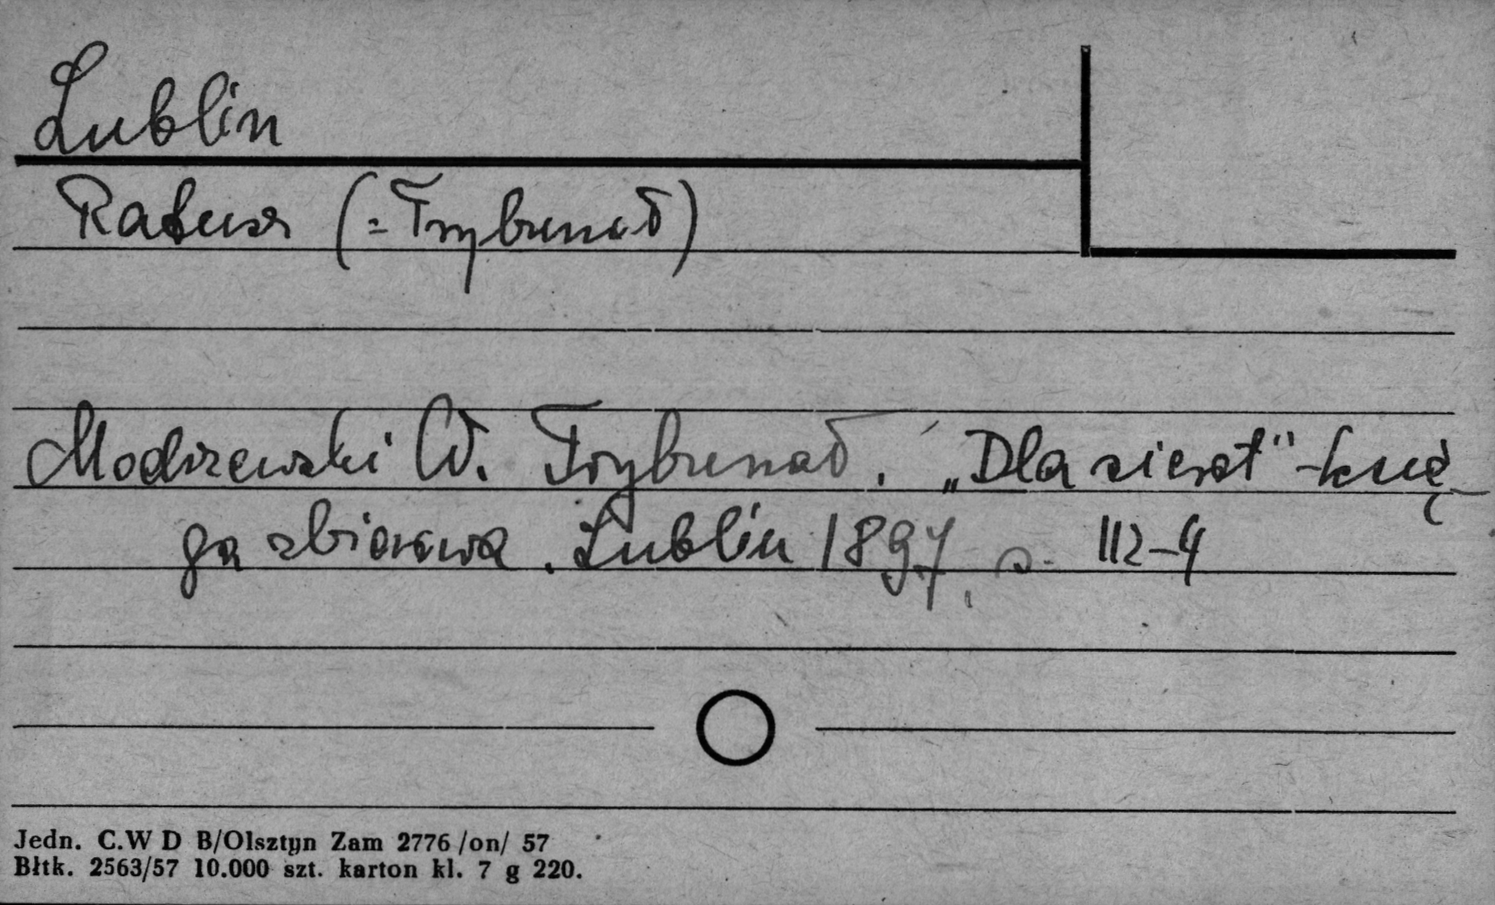 Lublin
Ratusz (= Trybunał)
Modrzewski W. Trybunał. „Dla sierot" - księ-
ga zbiorowa. Lublin 1897, s. 112-4
Jedn. C.W D B/Olsztyn Zam 2776 /on/ 57
Błtk. 2563/57 10.000 szt. karton kl. 7 g 220.